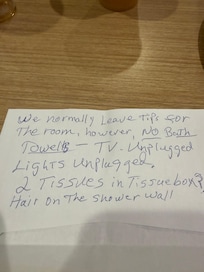 We normally Leave Tips for
The room, however, No Bath
Towells - TV. Unplugged
Lights Unplugged.
2 Tissues in Tissuebox?
Hair on The shower wall